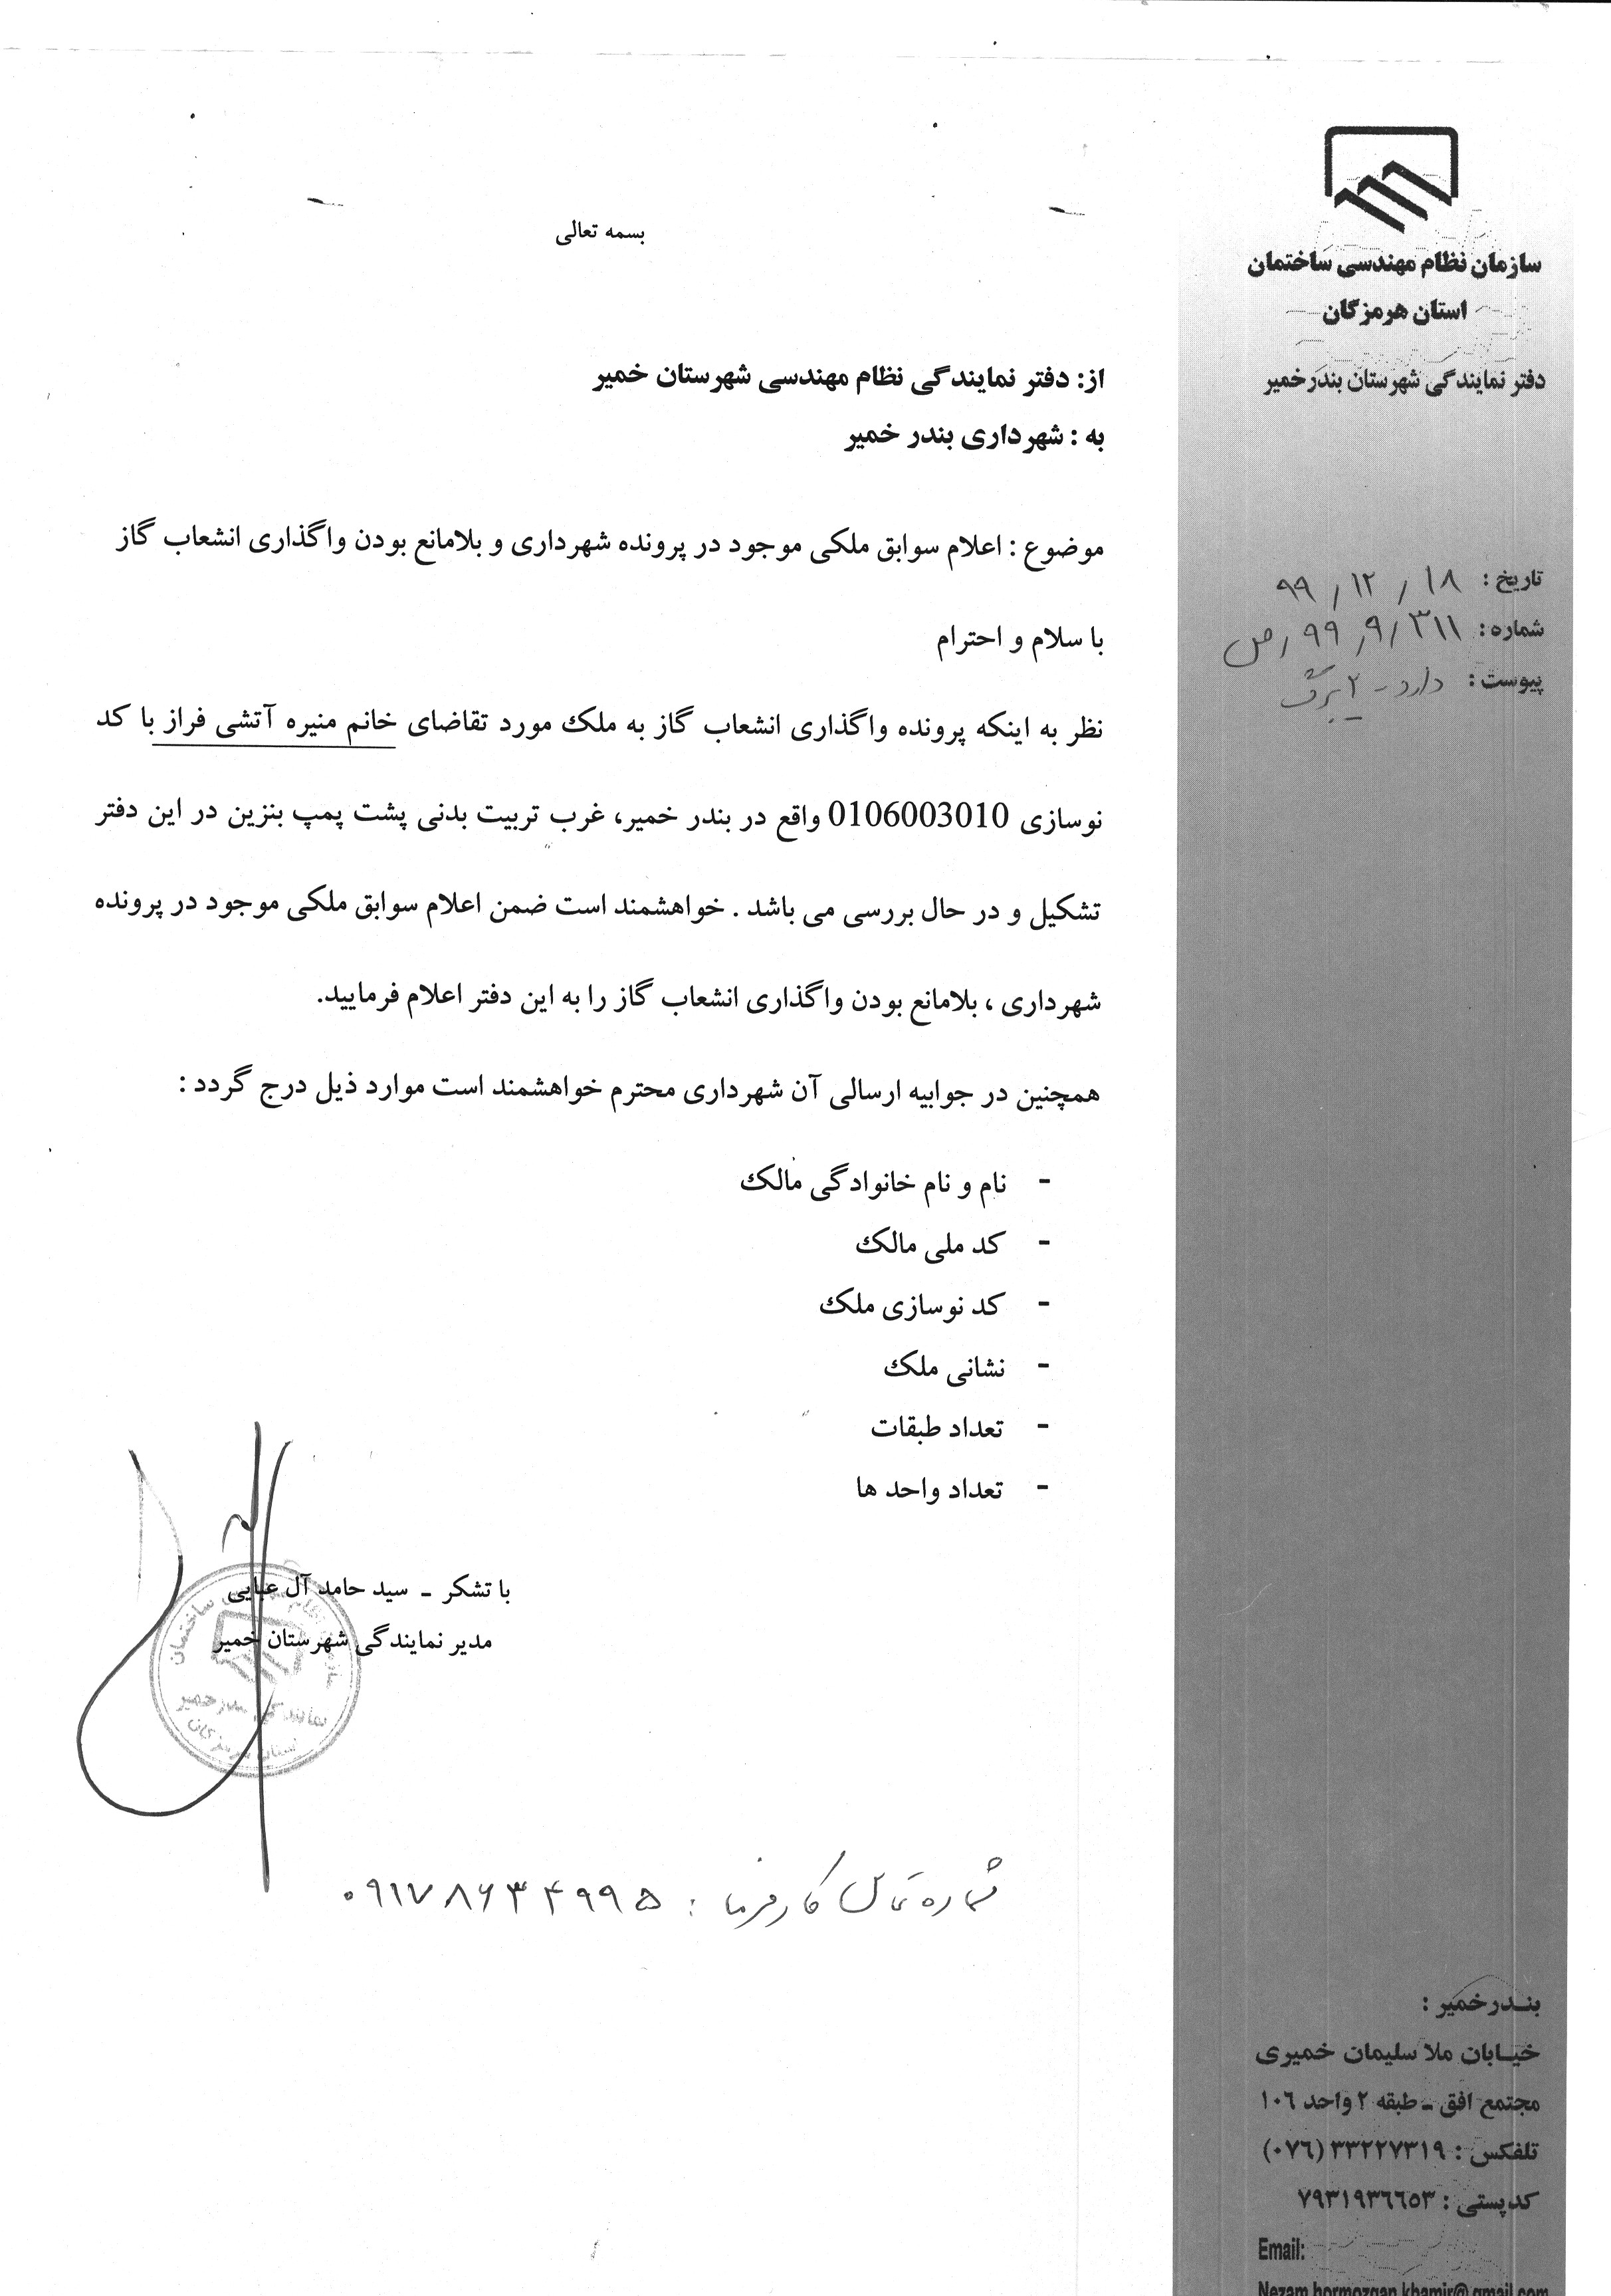 سازمان نظام مهندسی ساختمان
استان هرمزگان
دفتر نمایندگی شهرستان بندرخمیر
تاریخ : ۹۹ / ۱۲ / ۱۸
شماره : ۳۱۱ / ۹ / ۹۹ / ص
پیوست : دارد - ۲ برگ
بسمه تعالی
از: دفتر نمایندگی نظام مهندسی شهرستان خمیر
به : شهرداری بندر خمیر
موضوع : اعلام سوابق ملکی موجود در پرونده شهرداری و بلامانع بودن واگذاری انشعاب گاز
با سلام و احترام
نظر به اینکه پرونده واگذاری انشعاب گاز به ملک مورد تقاضای خانم منیره آتشی فراز با کد
نوسازی 0106003010 واقع در بندر خمیر، غرب تربیت بدنی پشت پمپ بنزین در این دفتر
تشکیل و در حال بررسی می باشد . خواهشمند است ضمن اعلام سوابق ملکی موجود در پرونده
شهرداری ، بلامانع بودن واگذاری انشعاب گاز را به این دفتر اعلام فرمایید.
همچنین در جوابیه ارسالی آن شهرداری محترم خواهشمند است موارد ذیل درج گردد :
- نام و نام خانوادگی مالک
- کد ملی مالک
- کد نوسازی ملک
- نشانی ملک
- تعداد طبقات
- تعداد واحد ها
با تشکر - سید حامد آل عبایی
مدیر نمایندگی شهرستان خمیر
نمایندگی بندرخمیر
شماره تماس کارفرما : ۰۹۱۷۸۶۳۴۹۹۵
بندرخمیر :
خیابان ملا سلیمان خمیری
مجتمع افق - طبقه ۲ واحد ۱۰۶
تلفکس : ۳۳۲۲۷۳۱۹ (۰۷۶)
کدپستی : ۷۹۳۱۹۳۶۶۵۳
Email:
Nezam.hormozgan.khamir@gmail.com